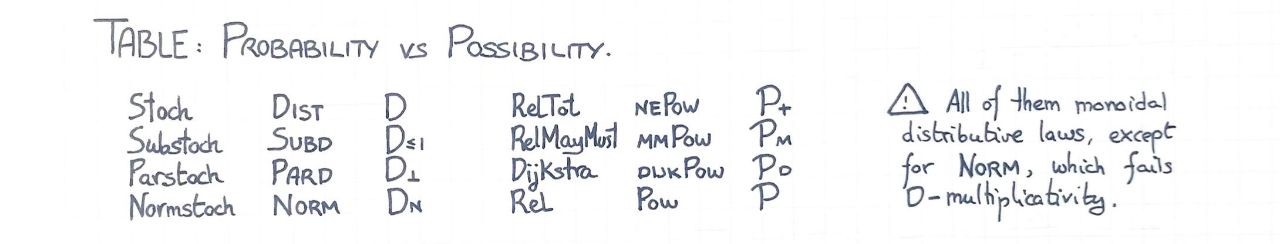 TABLE: PROBABILITY VS POSSIBILITY.
Stoch DIST D RelTot NEPOW P+
Substoch SUBD D≤1 RelMayMust MMPOW PM
Parstoch PARD D⊥ Dijkstra DIJKPOW PD
Normstoch NORM DN Rel POW P
⚠ All of them monoidal
distributive laws, except
for NORM, which fails
D-multiplicativity.